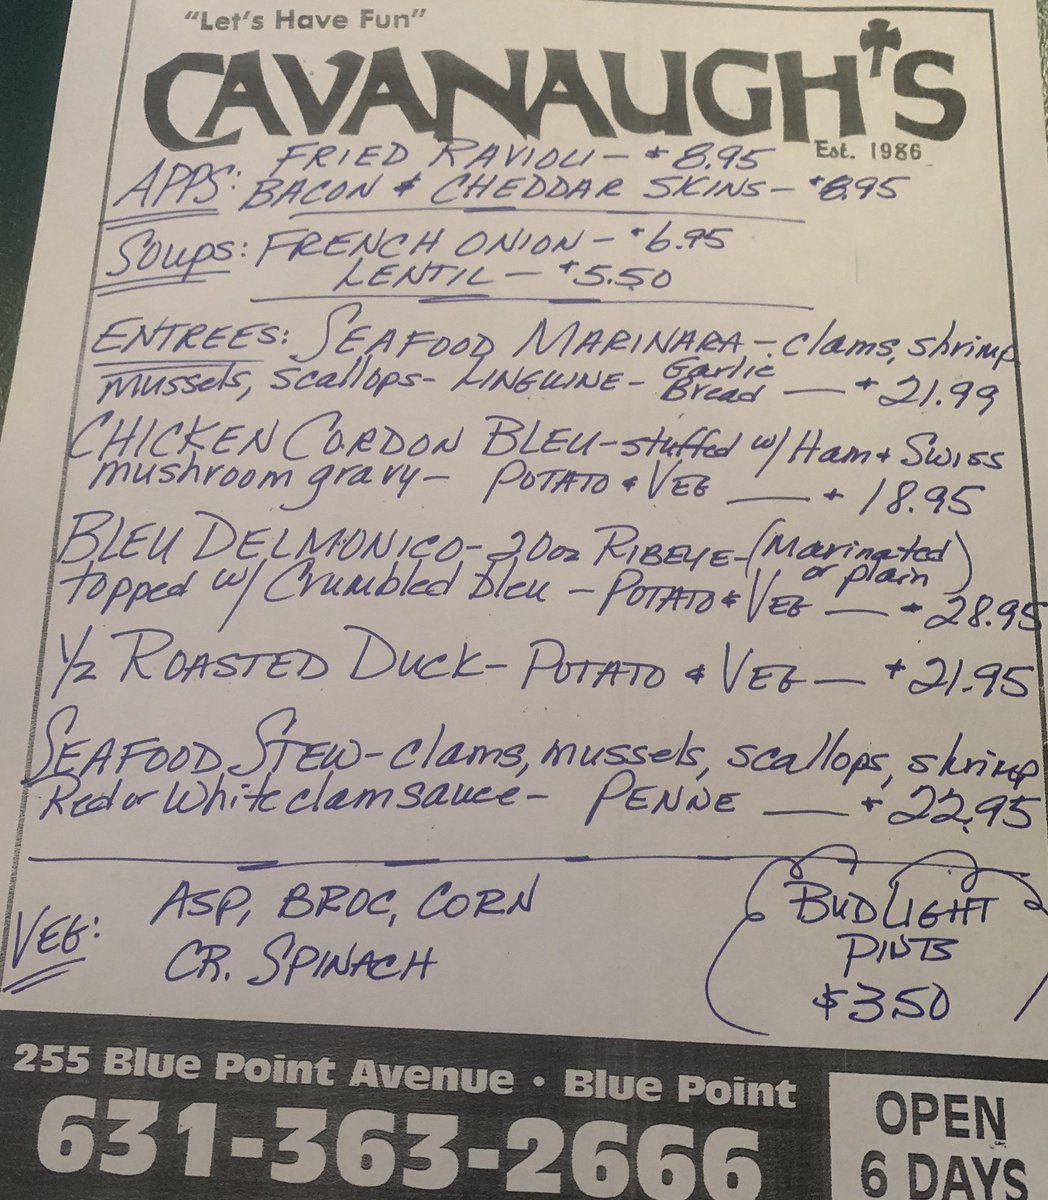 "Let's Have Fun"
CAVANAUGH'S
Est. 1986
APPS: FRIED RAVIOLI - $8.95
BACON & CHEDDAR SKINS - $8.95
SOUPS: FRENCH ONION - $6.95
LENTIL - $5.50
ENTREES: SEAFOOD MARINARA - clams, shrimp
mussels, scallops - LINGUINE - Garlic Bread — $21.99
CHICKEN CORDON BLEU - stuffed w/ Ham & Swiss
mushroom gravy - POTATO & VEG — $18.95
BLEU DELMONICO - 20oz RIBEYE - (Marinated or plain)
topped w/ Crumbled bleu - POTATO & VEG — $28.95
1/2 ROASTED DUCK - POTATO & VEG — $21.95
SEAFOOD STEW - clams, mussels, scallops, shrimp
Red or White clam sauce - PENNE — $22.95
VEG: ASP, BROC, CORN
CR. SPINACH
BUD LIGHT
PINTS
$3.50
255 Blue Point Avenue • Blue Point
631-363-2666
OPEN
6 DAYS